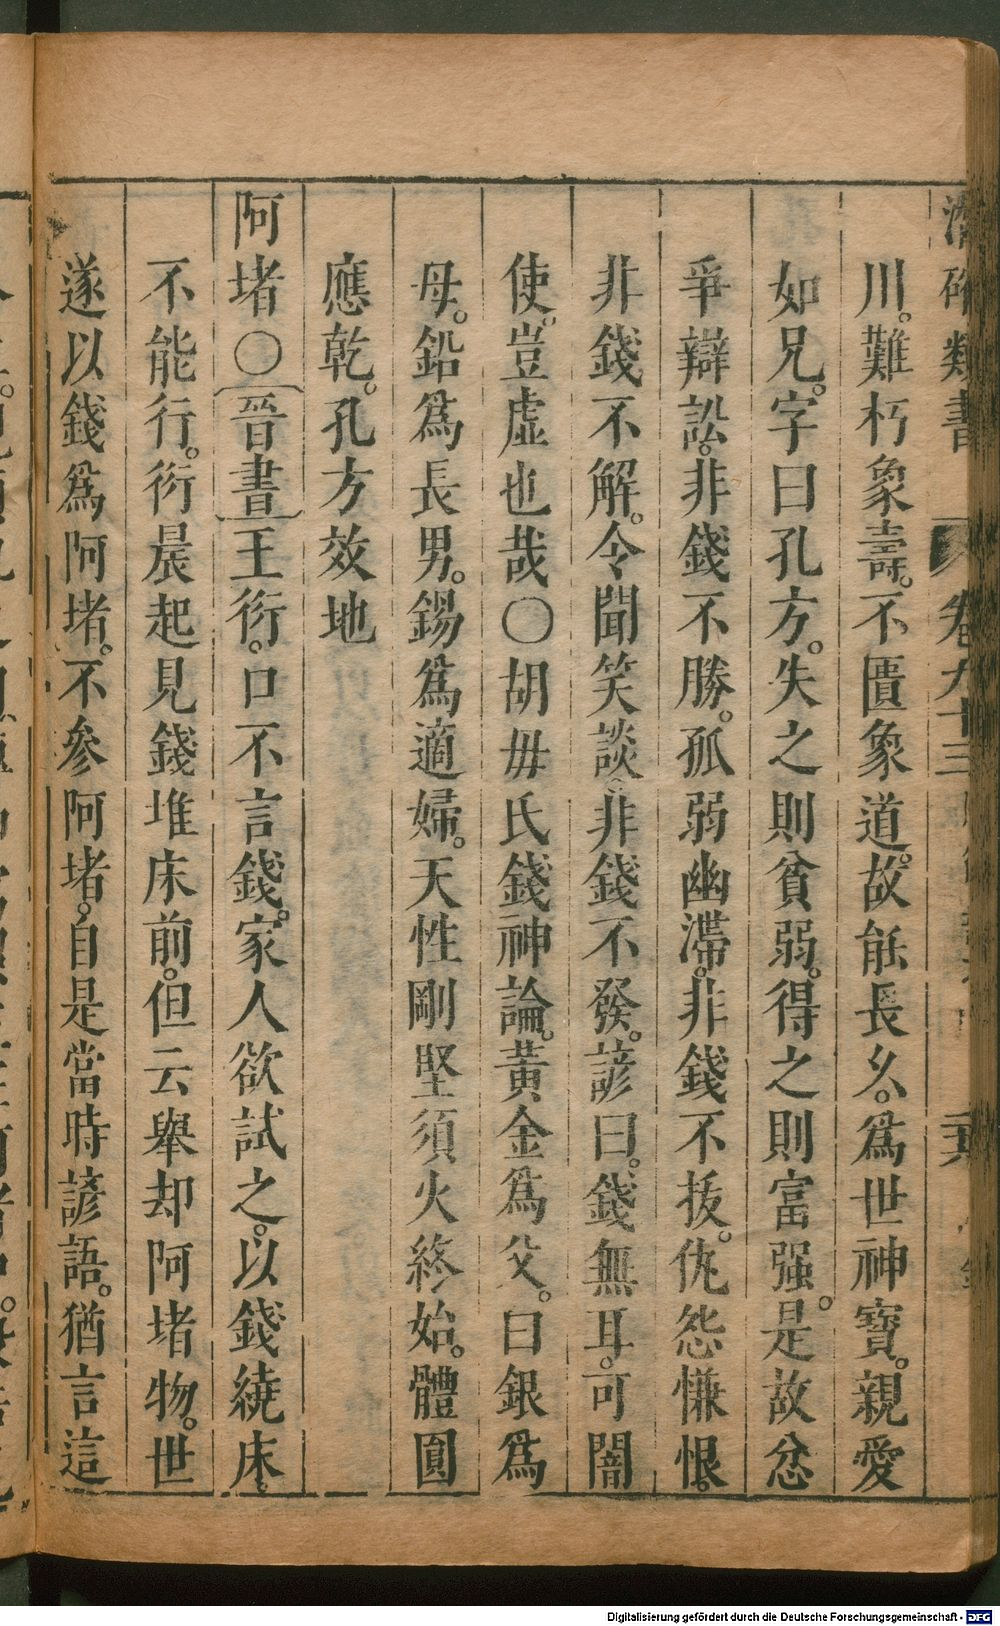 潛確類書 卷九十三 二六
川。難朽象壽。不匱象道。故能長久。爲世神寶。親愛
如兄。字曰孔方。失之則貧弱。得之則富强。是故忿
爭辯訟。非錢不勝。孤弱幽滯。非錢不拔。仇怨慊恨。
非錢不解。令聞笑談。非錢不發。諺曰。錢無耳。可闇
使。豈虛也哉〇胡毋氏錢神論。黃金爲父。曰銀爲
母。鉛爲長男。錫爲適婦。天性剛堅須火終始。體圓
應乾。孔方效地
阿堵〇〔晉書〕王衍。口不言錢。家人欲試之。以錢繞床。
不能行。衍晨起見錢堆床前。但云舉却阿堵物。世
遂以錢爲阿堵。不參阿堵。自是當時諺語。猶言這
Digitalisierung gefördert durch die Deutsche Forschungsgemeinschaft - DFG